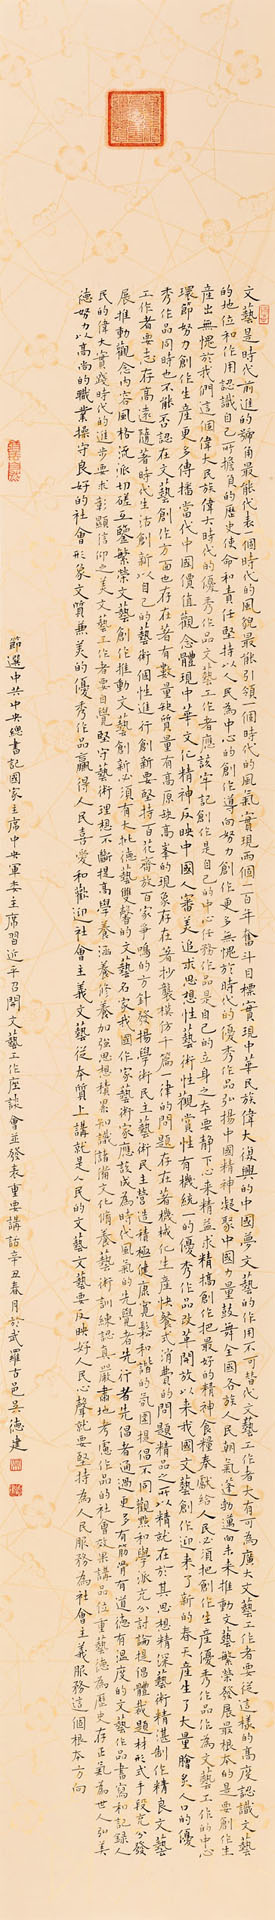 文藝是時代前進的號角最能代表個時代的風貌最能引領一個時代的風氣實現兩個一百年奮斗目標實現中華民族偉大復興的中國夢文藝的作用不可替代文藝工作者大有可為廣大文藝工作者要從這樣的高度認識文藝
的地位和作用認識自己所擔負的歷史使命和責任堅持以人民為中心的創作導向努力創作更多無愧於時代的優秀作品弘揚中國精神凝聚中國力量鼓舞全國各族人民朝氣蓬勃邁向未來推動文藝繁榮發展最根本的是要創作生
産出無愧於我們這個偉大民族偉大時代的優秀作品文藝工作者應該牢記創作是自己的中心任務作品是自己的立身之本要靜下心來精益求精搞創作把最好的精神食糧奉獻給人民必須把創作生産優秀作品作為文藝工作的中心
環節努力創作生産更多傳播當代中國價值觀念體現中華文化精神反映中國人審美追求思想性藝術性觀賞性有機統一的優秀作品改革開放以來我國文藝創作迎來了新的春天産生了大量膾炙人口的優
秀作品同時也不能否認在文藝創作方面也存在著有數量缺質量有高原缺高峯的現象存在著抄襲模仿千篇一律的問題存在著機械化生産快餐式消費的問題精品之所以精就在於其思想精深藝術精湛制作精良文藝
工作者要志存高遠隨著時代生活創新以自己的藝術個性進行創新要堅持百花齊放百家爭鳴的方針發揚學術民主藝術民主營造積極健康寬鬆和諧的氛圍提倡不同觀點和學派充分討論提倡體裁題材形式手段充分發
展推動觀念內容風格流派切磋互鑒繁榮文藝創作推動文藝創新必須有大批德藝雙馨的文藝名家我國作家藝術家應該成為時代風氣的先覺者先行者先倡者通過更多有筋骨有道德有溫度的文藝作品書寫和記錄人
民的偉大實踐時代的進步要求彰顯信仰之美文藝工作者要自覺堅守藝術理想不斷提高學養涵養修養加強思想積累知識儲備文化修養藝術訓練認真嚴肅地考慮作品的社會效果講品位重藝德為歷史存正氣為世人弘美
德努力以高尚的職業操守良好的社會形象文質兼美的優秀作品贏得人民喜愛和歡迎社會主義文藝從本質上講就是人民的文藝文藝要反映好人民心聲就要堅持為人民服務為社會主義服務這個根本方向
節選中共中央總書記國家主席中央軍委主席習近平召開文藝工作座談會並發表重要講話辛丑春月於武羅古邑吳德建